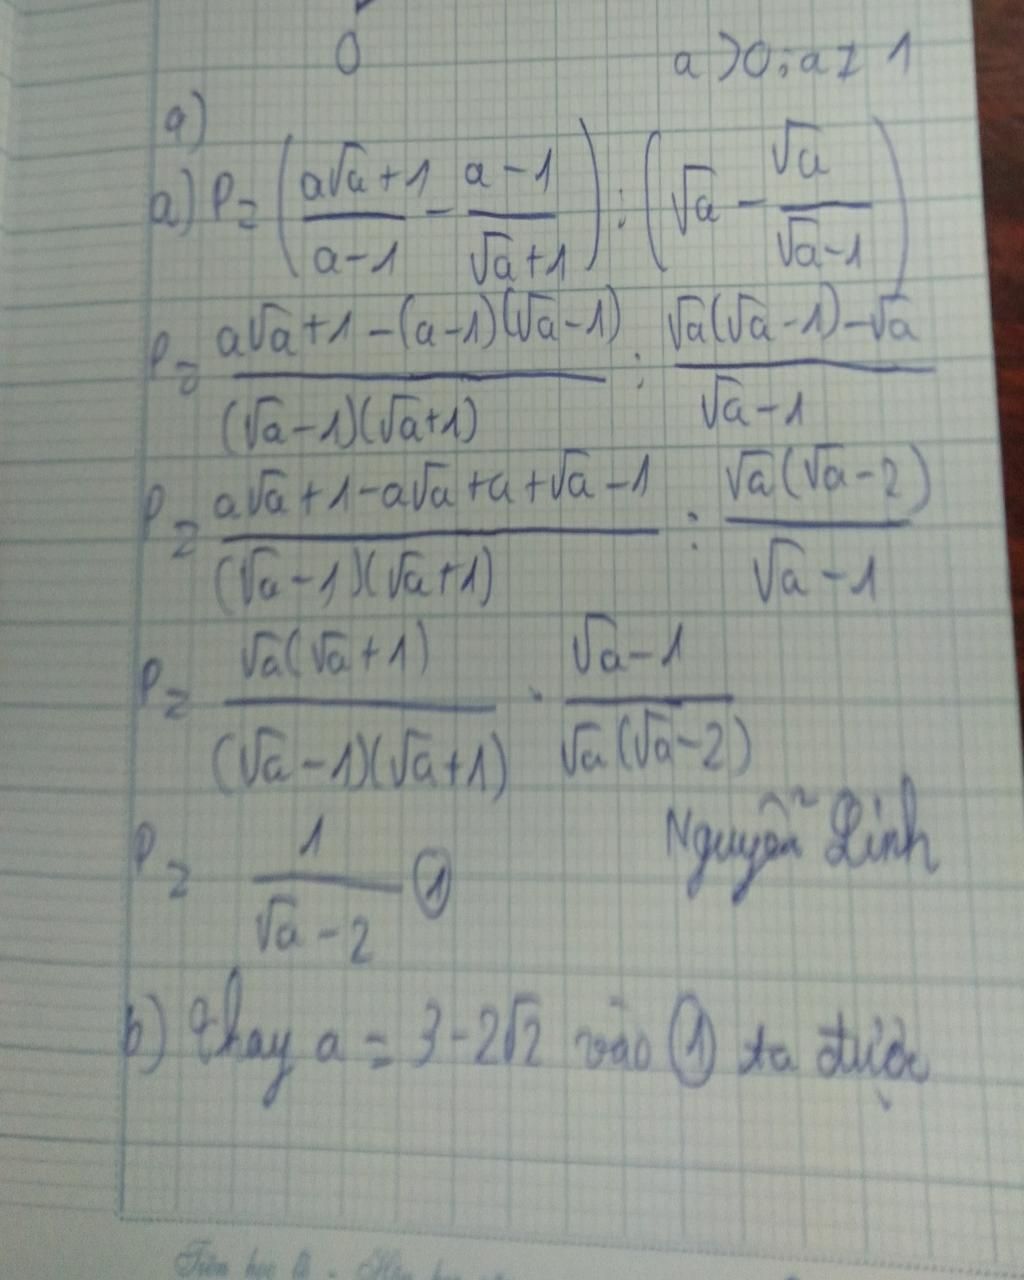 0
a>0; a≠1
a)
a) P = ( (a√a+1)/(a-1) - (a-1)/(√a+1) ) : ( √a - √a/(√a-1) )
P = (a√a+1-(a-1)(√a-1))/((√a-1)(√a+1)) : (√a(√a-1)-√a)/(√a-1)
P = (a√a+1-a√a+a+√a-1)/((√a-1)(√a+1)) : (√a(√a-2))/(√a-1)
P = (√a(√a+1))/((√a-1)(√a+1)) · (√a-1)/(√a(√a-2))
P = 1/(√a-2) ①
Nguyễn Linh
b) Thay a = 3-2√2 vào ① ta được